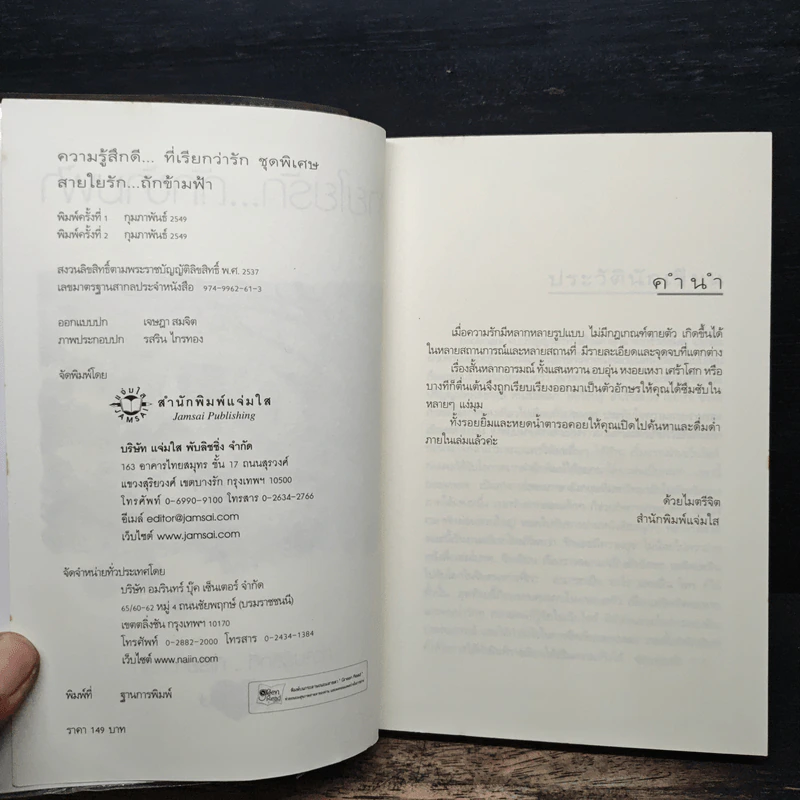 ความรู้สึกดี... ที่เรียกว่ารัก ชุดพิเศษ
สายใยรัก...ถักข้ามฟ้า
พิมพ์ครั้งที่ 1 กุมภาพันธ์ 2549
พิมพ์ครั้งที่ 2 กุมภาพันธ์ 2549
สงวนลิขสิทธิ์ตามพระราชบัญญัติลิขสิทธิ์ พ.ศ. 2537
เลขมาตรฐานสากลประจำหนังสือ 974-9962-61-3
ออกแบบปก เจษฎา สมจิต
ภาพประกอบปก รสริน ไกรทอง
จัดพิมพ์โดย
แจ่มใส
JAMSAI
สำนักพิมพ์แจ่มใส
Jamsai Publishing
บริษัท แจ่มใส พับลิชชิ่ง จำกัด
163 อาคารไทยสมุทร ชั้น 17 ถนนสุรวงศ์
แขวงสุริยวงศ์ เขตบางรัก กรุงเทพฯ 10500
โทรศัพท์ 0-6990-9100 โทรสาร 0-2634-2766
อีเมล์ editor@jamsai.com
เว็บไซต์ www.jamsai.com
จัดจำหน่ายทั่วประเทศโดย
บริษัท อมรินทร์ บุ๊ค เซ็นเตอร์ จำกัด
65/60-62 หมู่ 4 ถนนชัยพฤกษ์ (บรมราชชนนี)
เขตตลิ่งชัน กรุงเทพฯ 10170
โทรศัพท์ 0-2882-2000 โทรสาร 0-2434-1384
เว็บไซต์ www.naiin.com
พิมพ์ที่ ฐานการพิมพ์
ราคา 149 บาท
คำนำ
เมื่อความรักมีหลากหลายรูปแบบ ไม่มีกฎเกณฑ์ตายตัว เกิดขึ้นได้
ในหลายสถานการณ์และหลายสถานที่ มีรายละเอียดและจุดจบที่แตกต่าง
เรื่องสั้นหลากอารมณ์ ทั้งแสนหวาน อบอุ่น หงอยเหงา เศร้าโศก หรือ
บางทีก็ตื่นเต้นจึงถูกเรียบเรียงออกมาเป็นตัวอักษรให้คุณได้ซึมซับใน
หลายๆ แง่มุม
ทั้งรอยยิ้มและหยดน้ำตารอคอยให้คุณเปิดไปค้นหาและดื่มด่ำ
ภายในเล่มแล้วค่ะ
ด้วยไมตรีจิต
สำนักพิมพ์แจ่มใส